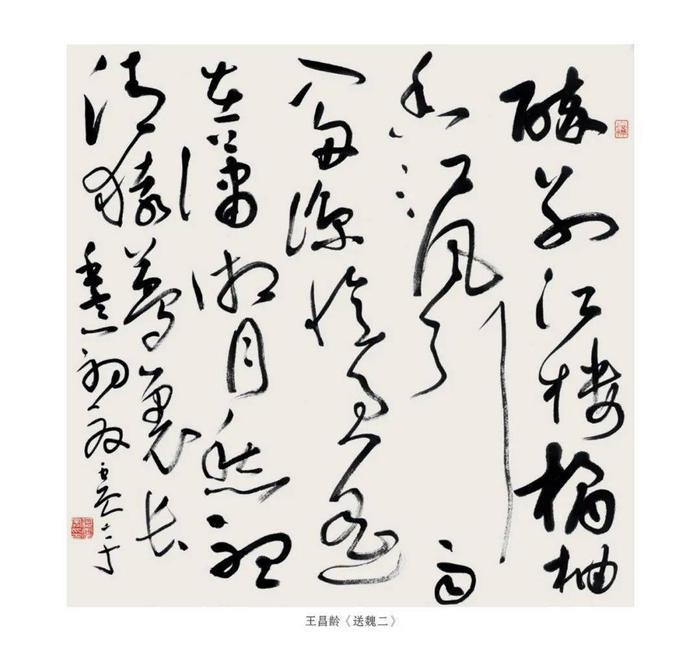 醉别江楼橘柚
香江风引雨
入舟凉忆君遥
在潇湘月愁听
清猿梦里长
王昌龄《送魏二》